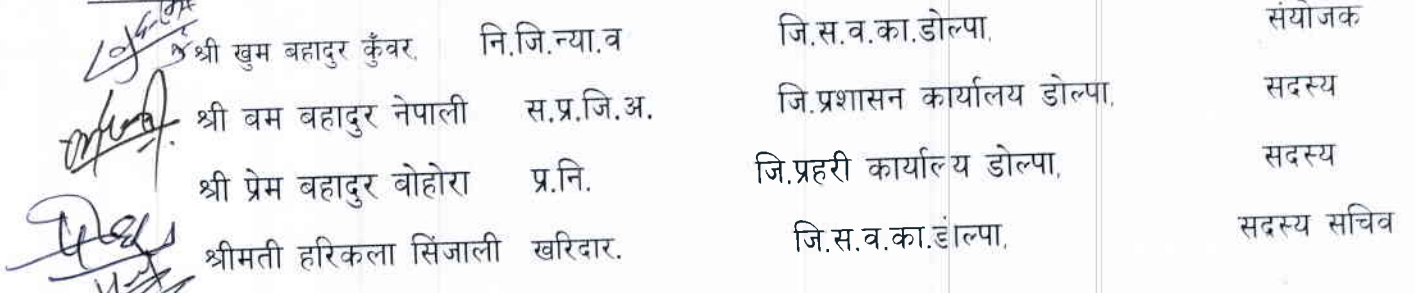 श्री खुम बहादुर कुँवर, नि.जि.न्या.व जि.स.व.का.डोल्पा, संयोजक
श्री वम बहादुर नेपाली स.प्र.जि.अ. जि.प्रशासन कार्यालय डोल्पा, सदस्य
श्री प्रेम बहादुर बोहोरा प्र.नि. जि.प्रहरी कार्याल्य डोल्पा, सदस्य
श्रीमती हरिकला सिंजाली खरिदार. जि.स.व.का.डोल्पा, सदस्य सचिव